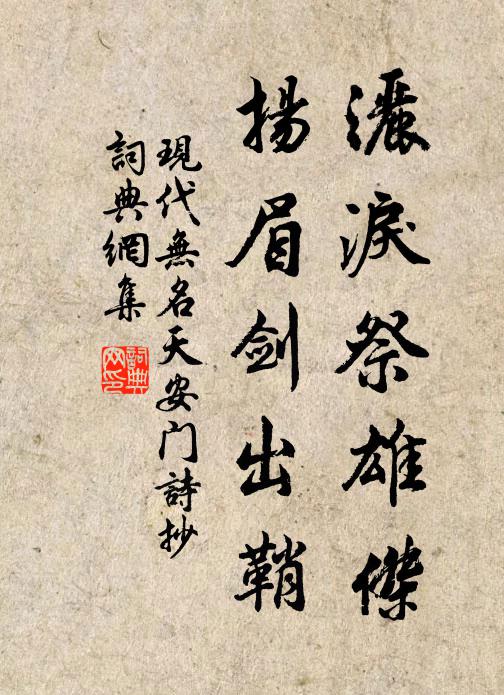 灑淚祭雄傑
揚眉劍出鞘
現代無名天安门詩抄
詞典網集
詞典
网印